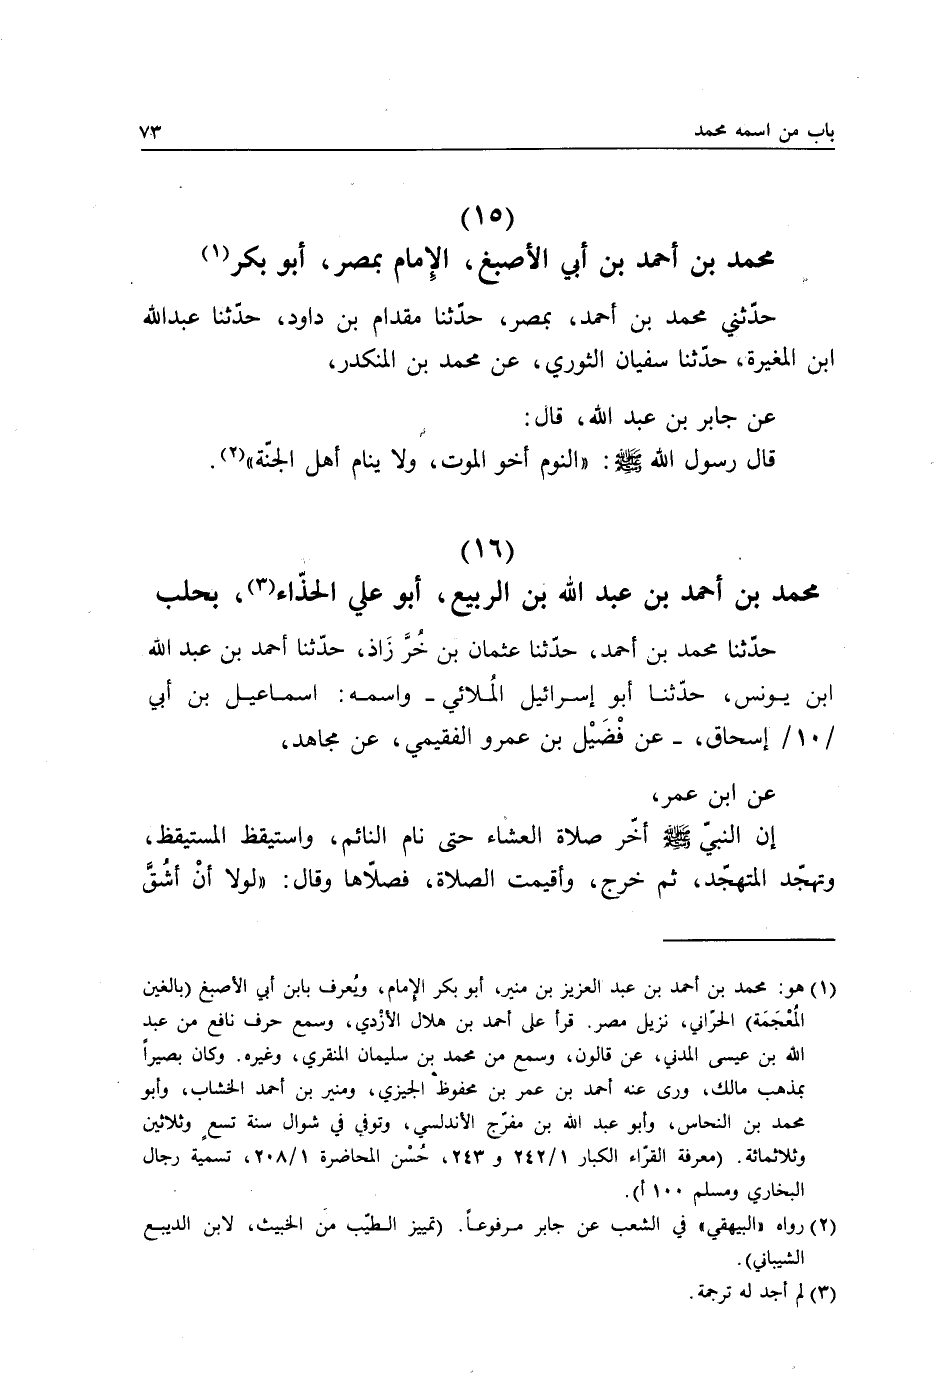 باب من اسمه محمد ٧٣
(١٥)
محمد بن أحمد بن أبي الأصبغ، الإمام بمصر، أبو بكر(١)
حدّثني محمد بن أحمد، بمصر، حدّثنا مقدام بن داود، حدّثنا عبدالله
ابن المغيرة، حدّثنا سفيان الثوري، عن محمد بن المنكدر،
عن جابر بن عبد الله، قال:
قال رسول الله ﷺ: «النوم أخو الموت، ولا ينام أهل الجنّة»(٢).
(١٦)
محمد بن أحمد بن عبد الله بن الربيع، أبو علي الحذّاء(٣)، بحلب
حدّثنا محمد بن أحمد، حدّثنا عثمان بن خُرَّ زَاذ، حدّثنا أحمد بن عبد الله
ابن يونس، حدّثنا أبو إسرائيل المُلائي ـ واسمه: اسماعيل بن أبي
/١٠/ إسحاق، ـ عن فْضَيْل بن عمرو الفقيمي، عن مجاهد،
عن ابن عمر،
إن النبيّ ﷺ أخّر صلاة العشاء حتى نام النائم، واستيقظ المستيقظ،
وتهجّد المتهجّد، ثم خرج، وأقيمت الصلاة، فصلّاها وقال: «لولا أنْ أشُقَّ
(١) هو: محمد بن أحمد بن عبد العزيز بن منير، أبو بكر الإمام، ويُعرف بابن أبي الأصبغ (بالغين
المُعْجَمَة) الحرّاني، نزيل مصر. قرأ على أحمد بن هلال الأزْدي، وسمع حرف نافع من عبد
الله بن عيسى المدني، عن قالون، وسمع من محمد بن سليمان المنقري، وغيره. وكان بصيراً
بمذهب مالك، ورى عنه أحمد بن عمر بن محفوظ الجيزي، ومنير بن أحمد الخشاب، وأبو
محمد بن النحاس، وأبو عبد الله بن مفرّج الأندلسي، وتوفي في شوال سنة تسعٍ وثلاثين
وثلاثمائة. (معرفة القرّاء الكبار ٢٤٢/١ و ٢٤٣، حُسْن المحاضرة ٢٠٨/١، تسمية رجال
البخاري ومسلم ١٠٠ أ).
(٢) رواه «البيهقي» في الشعب عن جابر مرفوعاً. (تمييز الطيّب من الخبيث، لابن الديبع
الشيباني).
(٣) لم أجد له ترجمة.